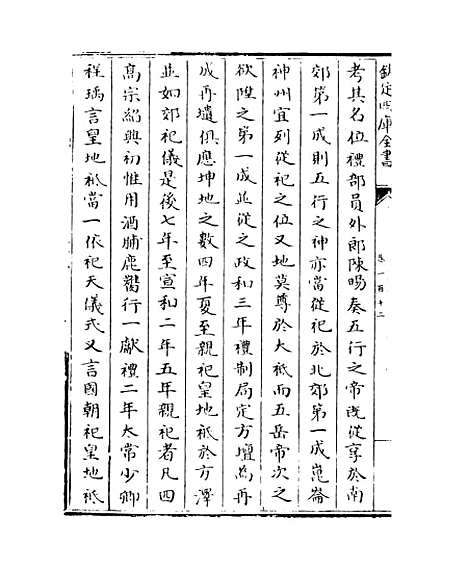 欽定四庫全書
卷一百十二
考其名位禮部員外郎陳暘奏五行之帝既從享於南
郊第一成則五行之神亦當從祀於北郊第一成崑崙
神州宜列從祀之位又地莫尊於大祇而五岳帝次之
欲陞之第一成並從之政和三年禮制局定方壇為再
成再壝俱應坤地之數四年夏至親祀皇地祇於方澤
並如郊祀儀是後七年至宣和二年五年親祀者凡四
髙宗紹興初惟用酒脯鹿臡行一獻禮二年太常少卿
程瑀言皇地祇當一依祀天儀式又言國朝祀皇地祇